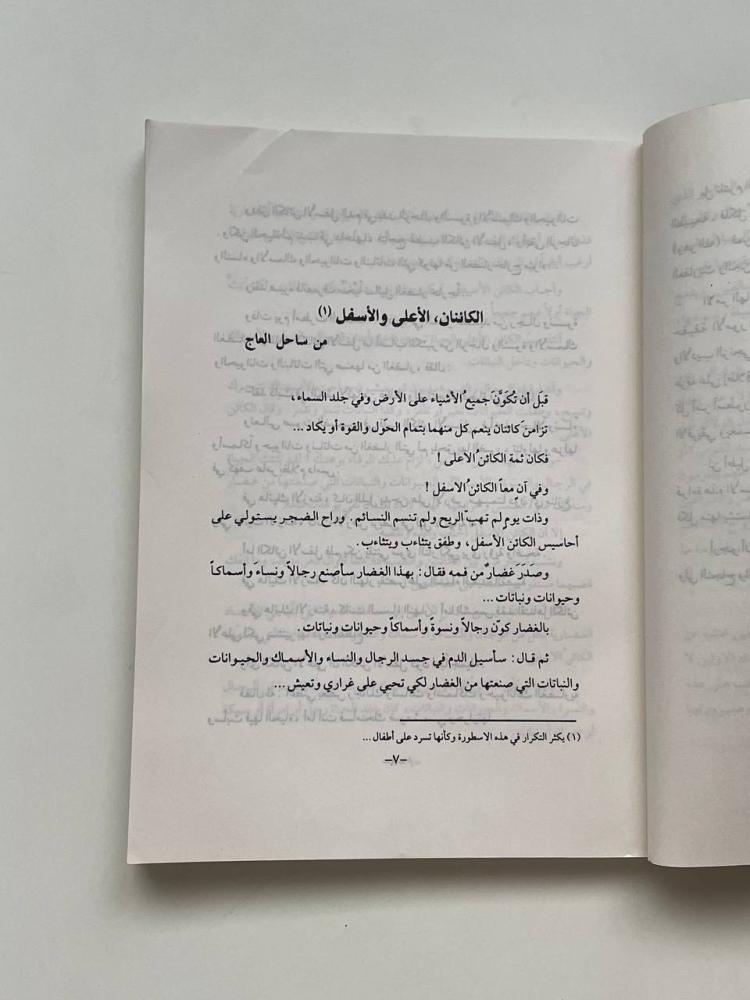 الكائنان، الأعلى والأسفل (١)
من ساحل العاج
قبَل أن تُكوَّنَ جميعُ الأشياء على الأرض وفي جلد السماء،
تزامنَ كائنان ينعم كل منهما بتمام الحَول والقوة أو يكاد ...
فكان ثمة الكائنُ الأعلى !
وفي آنٍ معاً الكائنُ الاسفل !
وذات يومٍ لم تهبّ الريح ولم تنسم النسائم . وراح الضجر يستولي على
أحاسيس الكائن الأسفل، وطفق يتثاءب ويتثاءب .
وصَدَرَ غضارٌ من فمه فقال : بهذا الغضار سأصنع رجالاً ونساءً وأسماكاً
وحيوانات ونباتات ...
بالغضار كوّن رجالاً ونسوةً وأسماكاً وحيوانات ونباتات .
ثم قال : سأسيل الدم في جسد الرجال والنساء والأسماك والحيوانات
والنباتات التي صنعتها من الغضار لكي تحيى على غراري وتعيش ...
(١) يكثر التكرار في هذه الاسطورة وكأنها تسرد على أطفال ...
-٧-